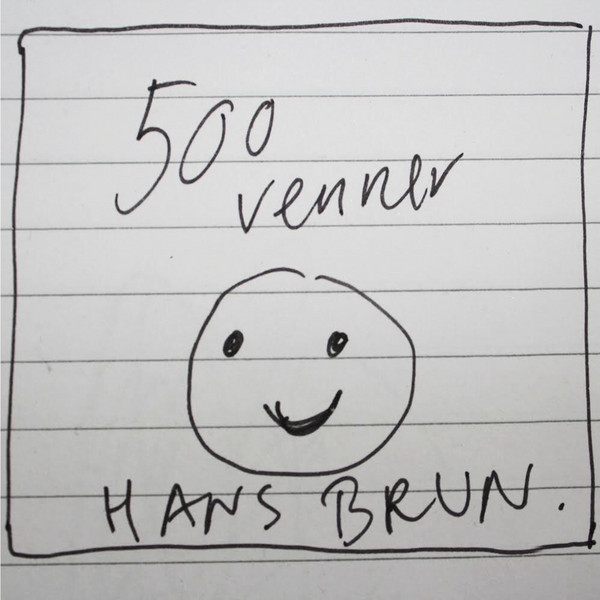 500
venner
HANS BRUN.